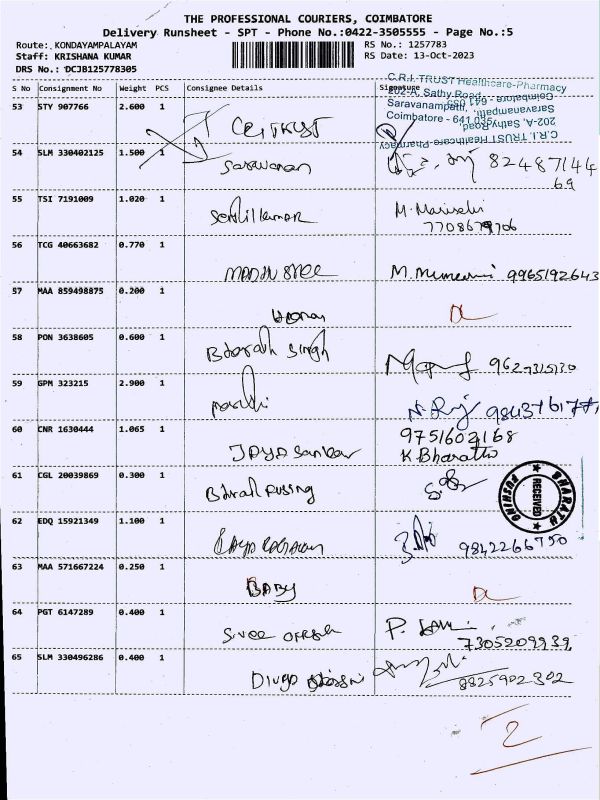 THE PROFESSIONAL COURIERS, COIMBATORE
Delivery Runsheet - SPT - Phone No.:0422-3505555 - Page No.:5
Route: KONDAYAMPALAYAM RS No.: 1257783
Staff: KRISHANA KUMAR RS Date: 13-Oct-2023
DRS No.: DCJB125778305
S No Consignment No Weight PCS Consignee Details Signature
C.R.I. TRUST Healthcare-Pharmacy
202-A, Sathy Road,
Saravanampatti,
Coimbatore - 641 035
C.R.I. TRUST Healthcare Pharmacy
202-A, Sathy Road
Saravanampatti,
Coimbatore - 641 035
53 STY 907766 2.600 1 CRI TRUST
54 SLM 330402125 1.500 1 Saravanan 82487144
69
55 TSI 7191009 1.020 1 Senthilkumar M.
7708679706
56 TCG 40663682 0.770 1 MADHU SREE M. 9965192643
57 MAA 859498875 0.200 1 DL
58 PON 3638605 0.600 1 Bharath Singh 9627315130
59 GPM 323215 2.900 1
60 CNR 1630444 1.065 1 JAYA Sankar 9751602168
K Bharathi
61 CGL 20039869 0.300 1
BHARATH PUSHING RECEIVED
62 EDQ 15921349 1.100 1 9842266750
63 MAA 571667224 0.250 1 BABY DL
64 PGT 6147289 0.400 1 Sree P.
7305209939
65 SLM 330496286 0.400 1 Divya 8825902302
2